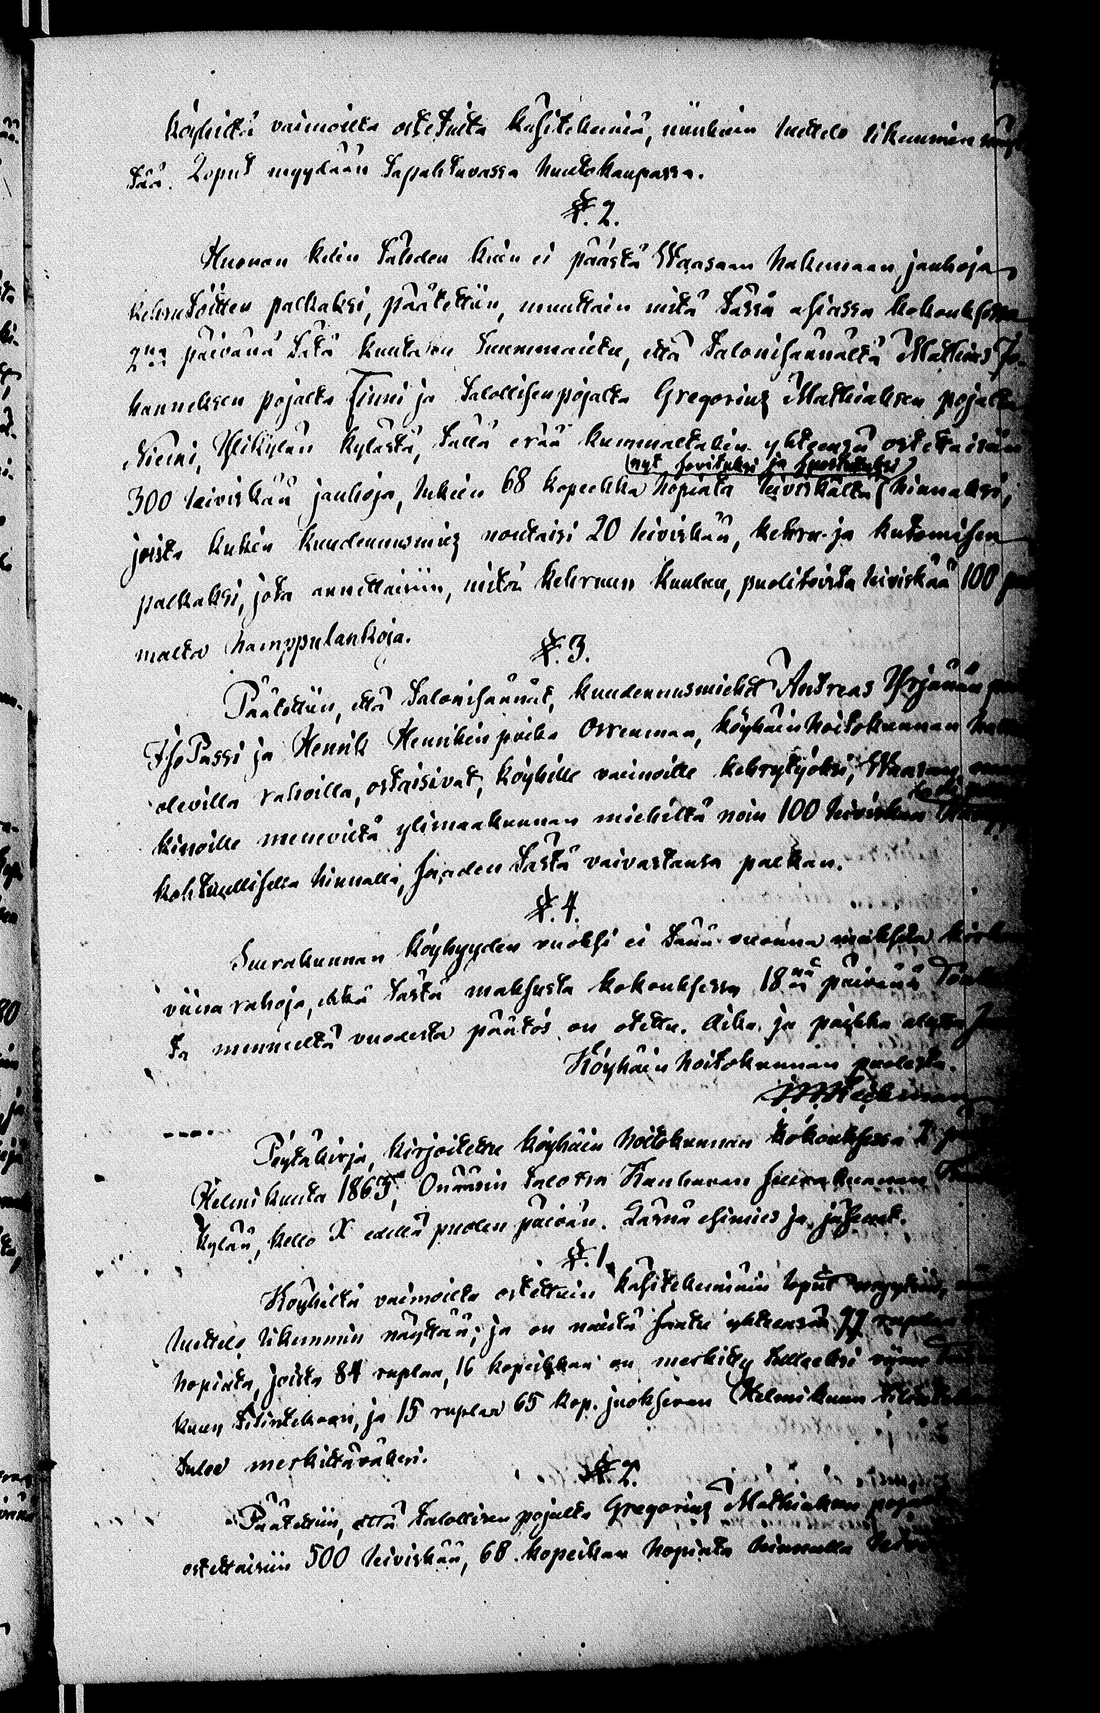 köyhiltä vaimoilta ostetuita käsitekemiä, niinkuin luettelo likemmin näyt-
tää. Loput myydään tapahtuvassa huutokaupassa.
§. 2.
Huonon kelin tähden kuin ei päästä Waasaan hakemaan jauhoja
kehruutöitten palkaksi, päätettiin, muuttain mitä tässä asiassa kokouksessa
2:na päivänä tätä kuuta on suunnattu, että talonisännältä Mathias Jo-
hanneksen pojalta Finni ja talollisenpojalta Gregorius Mathiaksen pojalta
Niemi, Ylikylän kylästä, tällä erää kummaltakin yhteensä ostettaisiin
(nyt sovituksi ja
300 leiviskää jauhoja, lukien 68 kopeekkaa hopiata leiviskältä hinnaksi,
joista kukin kuudennusmies noutaisi 20 leiviskää, kehru- ja kutomisen
palkaksi, jota annettaisiin, mitä kehruun kuuluu, puolitoista leiviskää 100
malta hamppulankoja.
§. 3.
Päätettiin, että talonisännät, kuudennusmiehet Andreas Yrjänän
Iso Passi ja Henrik Henrikinpoika Orrenmaa, köyhäinhoitokunnan
olevilla rahoilla, ostaisivat, köyhille vaimoille kehrutyöksi, Waasan
kinoille meneviltä ylimaakunnan miehiltä noin 100 leiviskää
kohtuullisella hinnalla, saaden tästä vaivastansa palkan.
§. 4.
Seurakunnan köyhyyden vuoksi ei tänä vuonna makseta
viina rahoja, ehkä tästä maksusta kokouksessa 18:na päivänä
ta mennellä vuodesta päätös on otettu. Aika ja paikka
Köyhäinhoitokunnan puolesta.
Pöytäkirja, kirjoitettu köyhäin hoitokunnan kokouksessa 2
Helmikuuta 1863, Ounasin talossa Kauhavan seurakunnan
kylää, kello X edellä puolen päivän. Läsnä esimies ja jäsenet.
§. 1.
Köyhiltä vaimoilta ostettuin käsitekemiäin loput myytiin,
luettelo likemmin näyttää; ja on näistä saatu yhteensä 99 ruplaa
hopiata, joista 84 ruplaa, 16 kopeekkaa on merkitty tulleeksi viime
kuun tilintekoon, ja 15 ruplaa 65 kop. juoksevan Helmikuun
tulee merkittäväksi.
§. 2.
Päätettiin, että talollisen pojalta Gregorius Mathiaksen
ostettaisiin 500 leiviskää, 68 kopeikan hopiata hinnalla